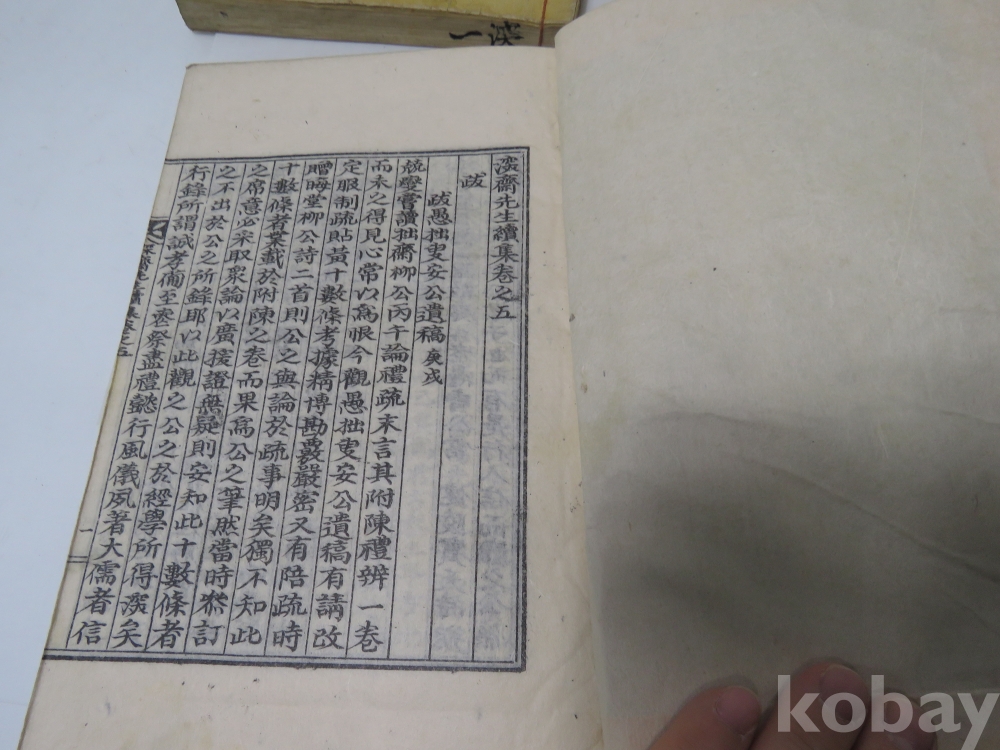 深齋先生續集卷之五
跋
跋愚拙叟安公遺稿庚戌
兢燮嘗讀拙齋柳公丙午論禮疏末言其附陳禮辨一卷
而未之得見心常以爲恨今觀愚拙叟安公遺稿有請改
定服制疏貼黃十數條考據精博勘覈嚴密又有陪疏時
贈晦堂柳公詩二首則公之與論於疏事明矣獨不知此
十數條者業載於附陳之卷而果爲公之筆然當時叅訂
之席意必采取衆論以廣援證無疑則安知此十數條者
之不出於公之所錄耶以此觀之公之於經學所得深矣
行錄所謂誠孝備至喪祭盡禮懿行風儀夙著大儒者信
深齋先生續集卷之五
一
深
一
kobay